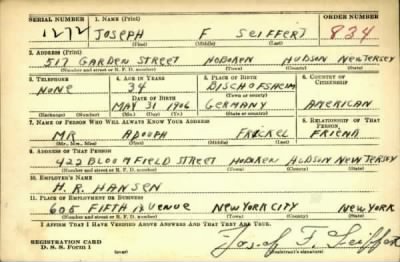 SERIAL NUMBER 1. NAME (Print) ORDER NUMBER
1272 JOSEPH F SEIFFERT 834
(First) (Middle) (Last)
2. ADDRESS (Print)
517 GARDEN STREET HOBOKEN HUDSON NEW JERSEY
(Number and street or R. F. D. number) (Town) (County) (State)
3. TELEPHONE 4. AGE IN YEARS 5. PLACE OF BIRTH 6. COUNTRY OF CITIZENSHIP
NONE 34 BISCHOFSHEIM
DATE OF BIRTH (Town or county)
MAY 31 1906 GERMANY AMERICAN
(Exchange) (No.) (Mo.) (Day) (Yr.) (State or country)
7. NAME OF PERSON WHO WILL ALWAYS KNOW YOUR ADDRESS 8. RELATIONSHIP OF THAT PERSON
MR ADOLPH FRICKEL FRIEND
(Mr., Mrs., Miss) (First) (Middle) (Last)
9. ADDRESS OF THAT PERSON
422 BLOOMFIELD STREET HOBOKEN HUDSON NEW JERSEY
(Number and street or R. F. D. number) (Town) (County) (State)
10. EMPLOYER'S NAME
H. R. HANSEN
11. PLACE OF EMPLOYMENT OR BUSINESS
605 FIFTH AVENUE NEW YORK CITY NEW YORK
(Number and street or R. F. D. number) (Town) (County) (State)
I AFFIRM THAT I HAVE VERIFIED ABOVE ANSWERS AND THAT THEY ARE TRUE.
REGISTRATION CARD
D. S. S. Form 1 (over) Joseph F. Seiffert
(Registrant's signature)